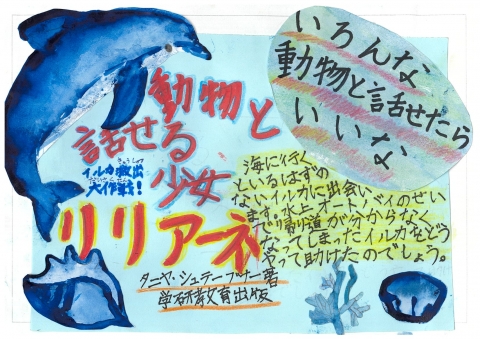 いろんな
動物と話せたら
いいな
動物と
話せる
少女
イルカ救出
きゅうしゅつ
大作戦!
だいさくせん
リリアーネ
海に行く
といるはずの
ないイルカに出会い
ます。水上オートバイのせい
で帰り道が分からなく
なってしまったイルカをどう
やって助けたのでしょう。
タニヤ・シュテーブナー著
学研教育出版